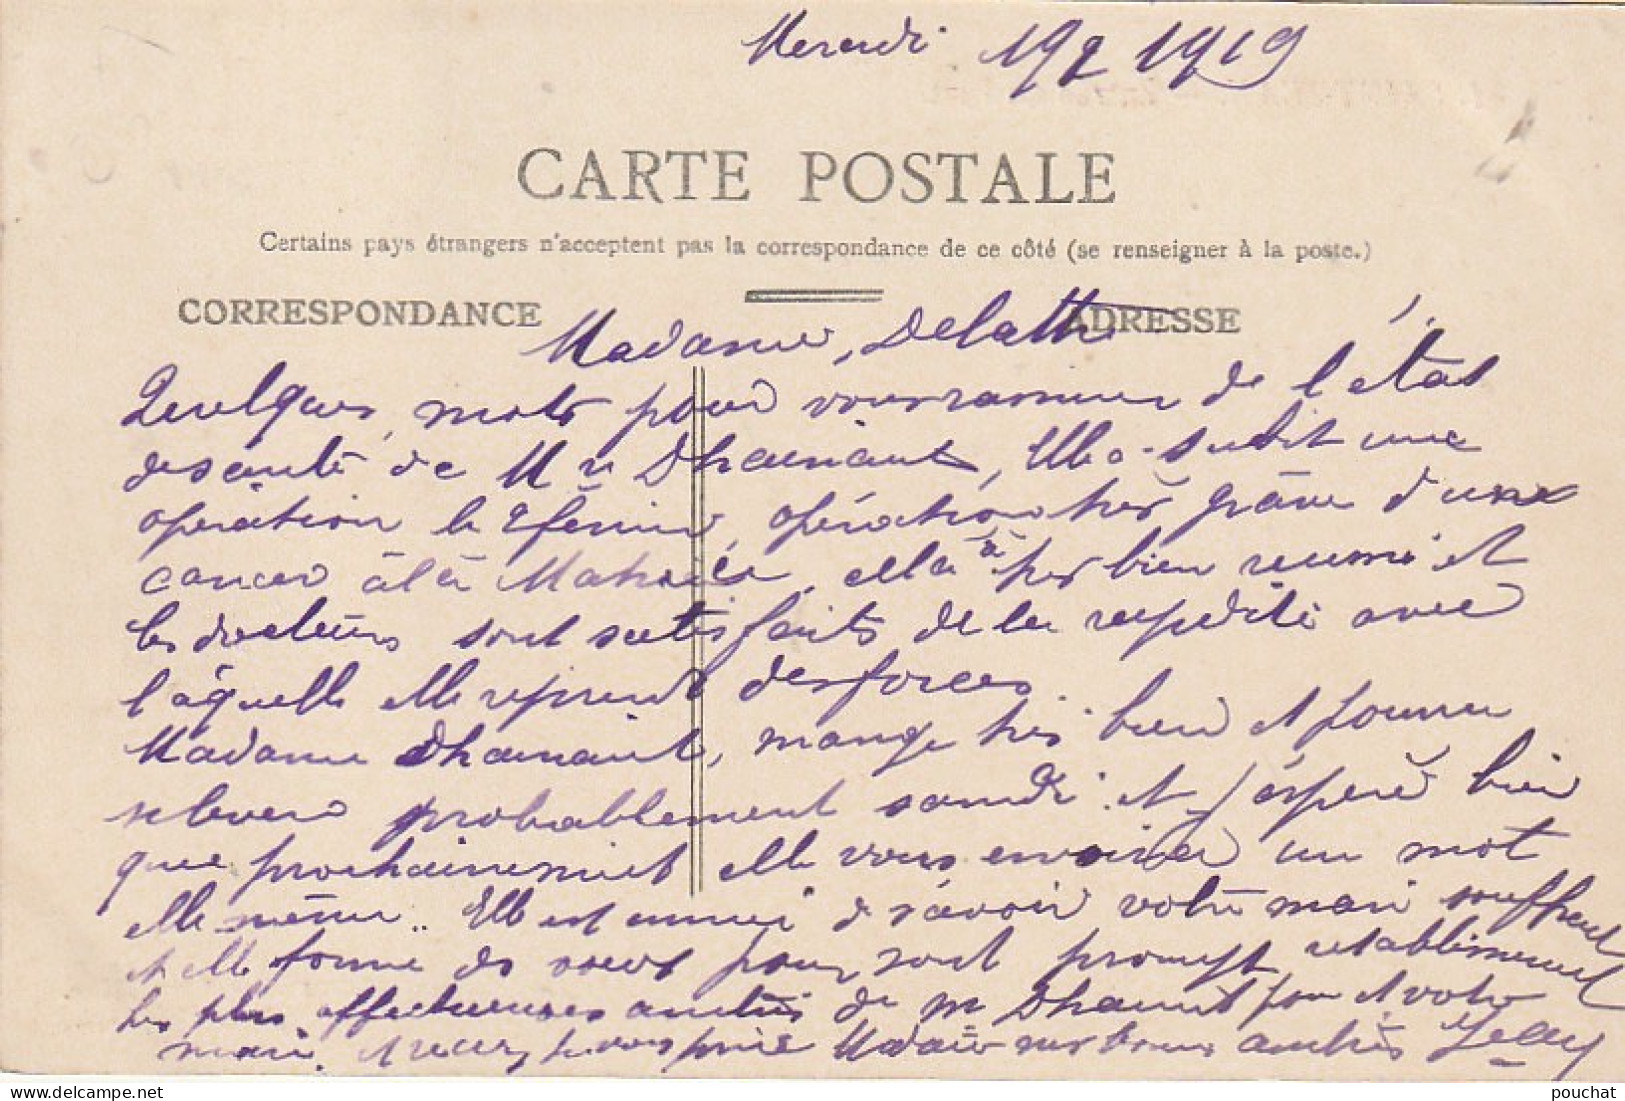 Mercredi 19 2 1919
CARTE POSTALE
Certains pays étrangers n'acceptent pas la correspondance de ce côté (se renseigner à la poste.)
CORRESPONDANCE
ADRESSE
Madame Delattre
Quelques mots pour vous rassurer de l'état
de santé de Mme Dhainaut, Elle a subit une
opération le 2 février, opération très grâve d'une
cancer à la Matrice, ella à très bien reussi et
les docteurs sont satisfaits de la rapidité avec
laquelle elle reprend des forces.
Madame Dhainaut, mange très bien et pourra
se lever probablement samedi et j'éspère bien
que prochainement elle vous envoiera un mot
elle même.. Elle est ennui de savoir votre mari souffrant
et elle forme des voeux pour sont prompt retablissement
Les plus affectueuses amitiés de m Dhainaut pour et votre
mari. et recevez je vous prie Madame mes bonnes amitiés